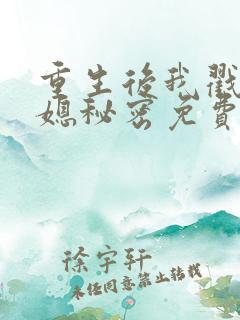 重生后我戳
媳秘密免费
徐宇轩
未经同意禁止转载